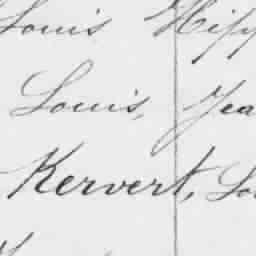 Louis Hipp
Louis, Jea
Kervert, Lo